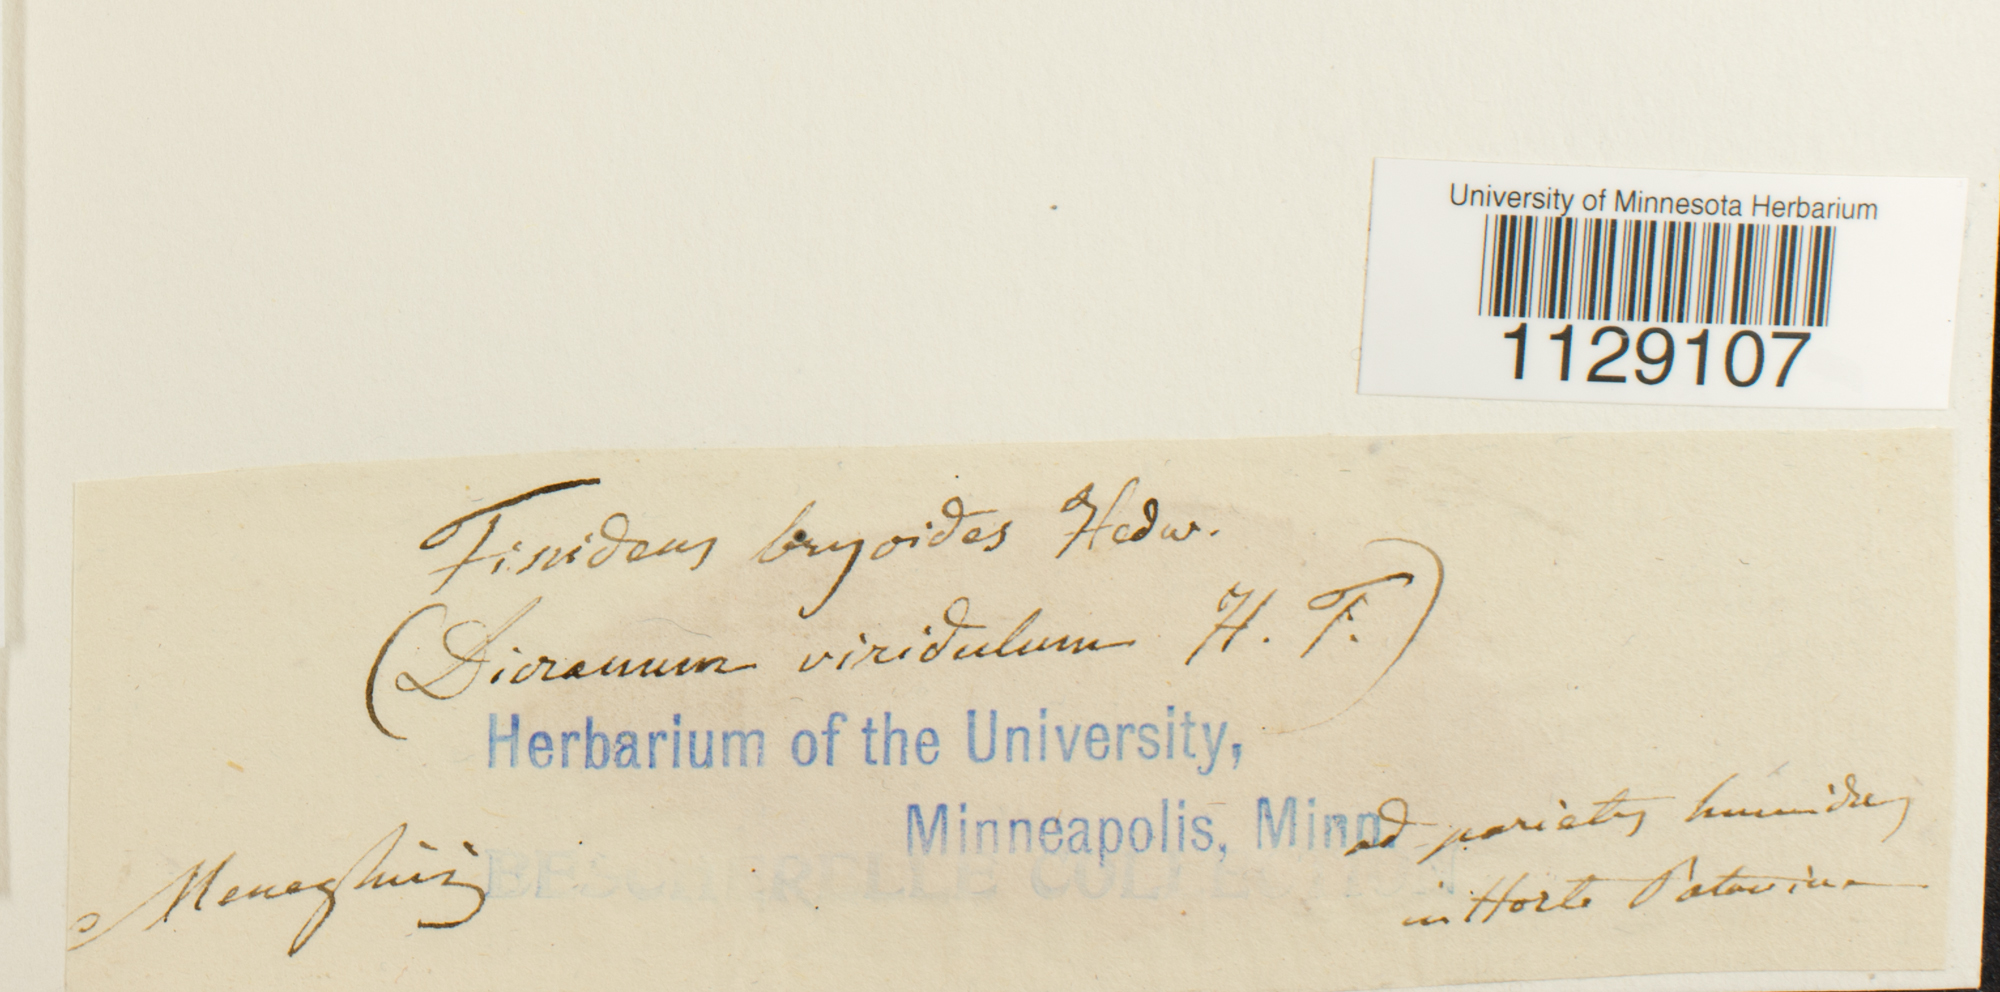 University of Minnesota Herbarium
1129107
Fissidens bryoides Hedw.
(Dicranum viridulum H. F.)
Herbarium of the University,
Minneapolis, Minn.
BESCHERELLE COLLECTION
Meneghini
ad parietes humidas
in Horto Patavino